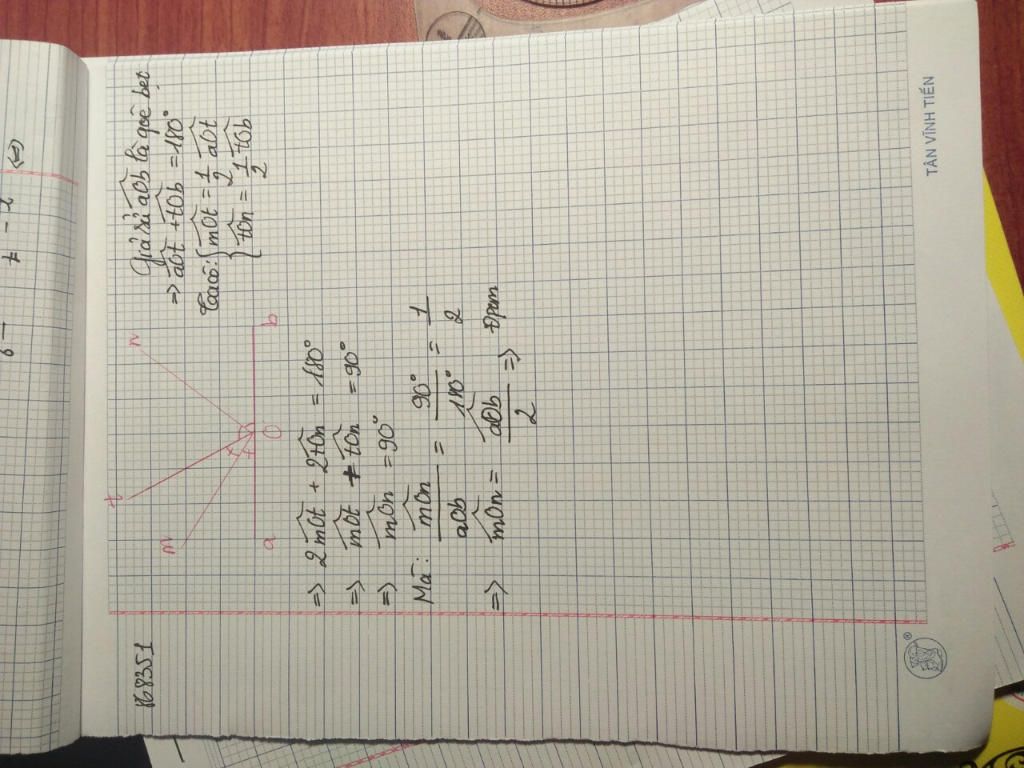 168351
t
m
n
a
O
b
Giả sử aOb là góc bẹt
=> aOt + tOb = 180°
Ta có: { mOt = 1/2 aOt
{ tOn = 1/2 tOb
=> 2 mOt + 2 tOn = 180°
=> mOt + tOn = 90°
=> mOn = 90°
Mà: mOn/aOb = 90°/180° = 1/2
=> mOn = aOb/2 => Đpcm
TÂN VĨNH TIẾN
®